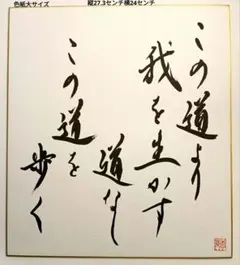 色紙大サイズ 縦27.3センチ横24センチ
この道より
我を生かす
道なし
この道を
歩く